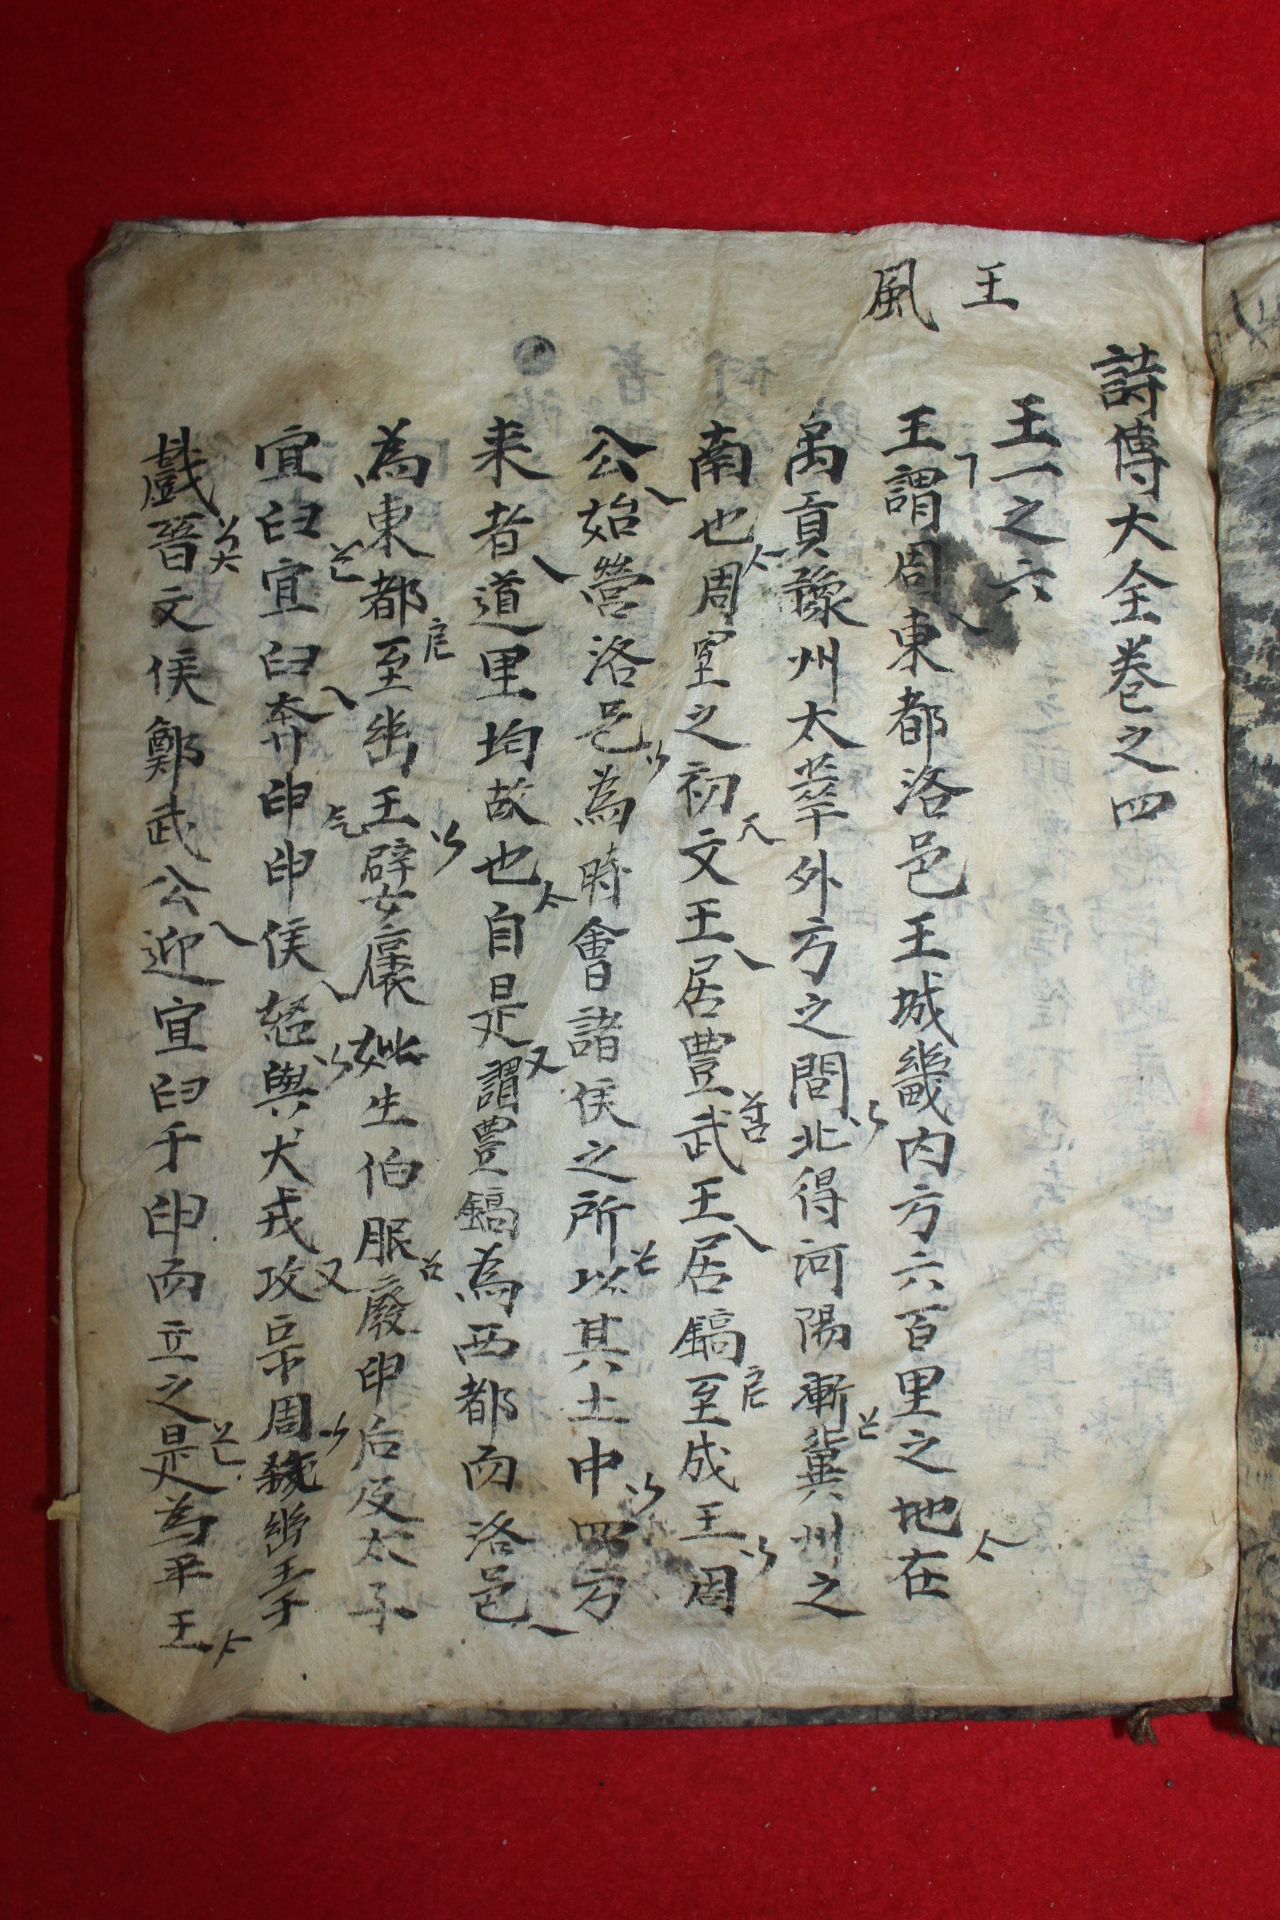 王風
詩傳大全卷之四
王一之六
王謂周東都洛邑王城畿内方六百里之地在
禹貢豫州太華外方之間北得河陽漸冀州之
南也周室之初文王居豊武王居鎬至成王周
公始營洛邑為時會諸侯之所以其土中四方
来者道里均故也自是謂豊鎬為西都而洛邑
為東都至幽王嬖褒姒生伯服廢申后及太子
宜臼宜臼奔申申侯怒與犬戎攻宗周弑幽王于
戲晉文侯鄭武公迎宜臼于申而立之是為平王